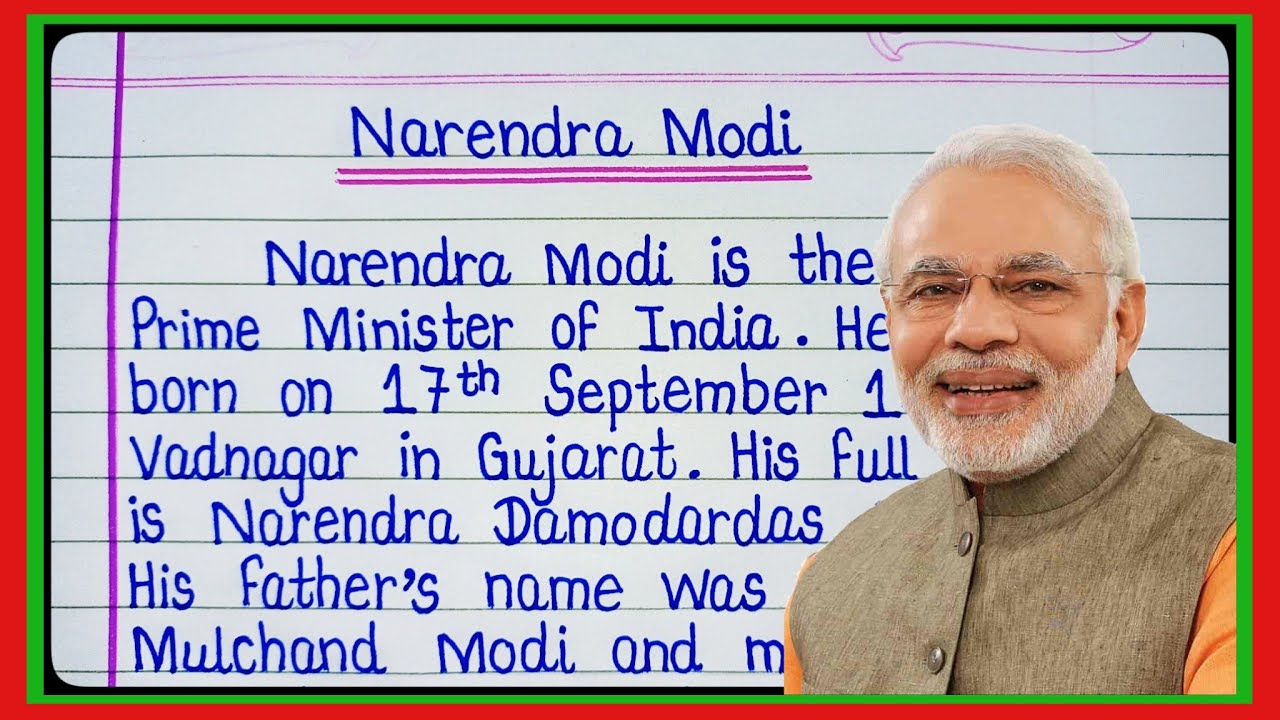 Narendra Modi
Narendra Modi is the
Prime Minister of India. He
born on 17th September 1
Vadnagar in Gujarat. His full
is Narendra Damodardas
His father's name was
Mulchand Modi and m